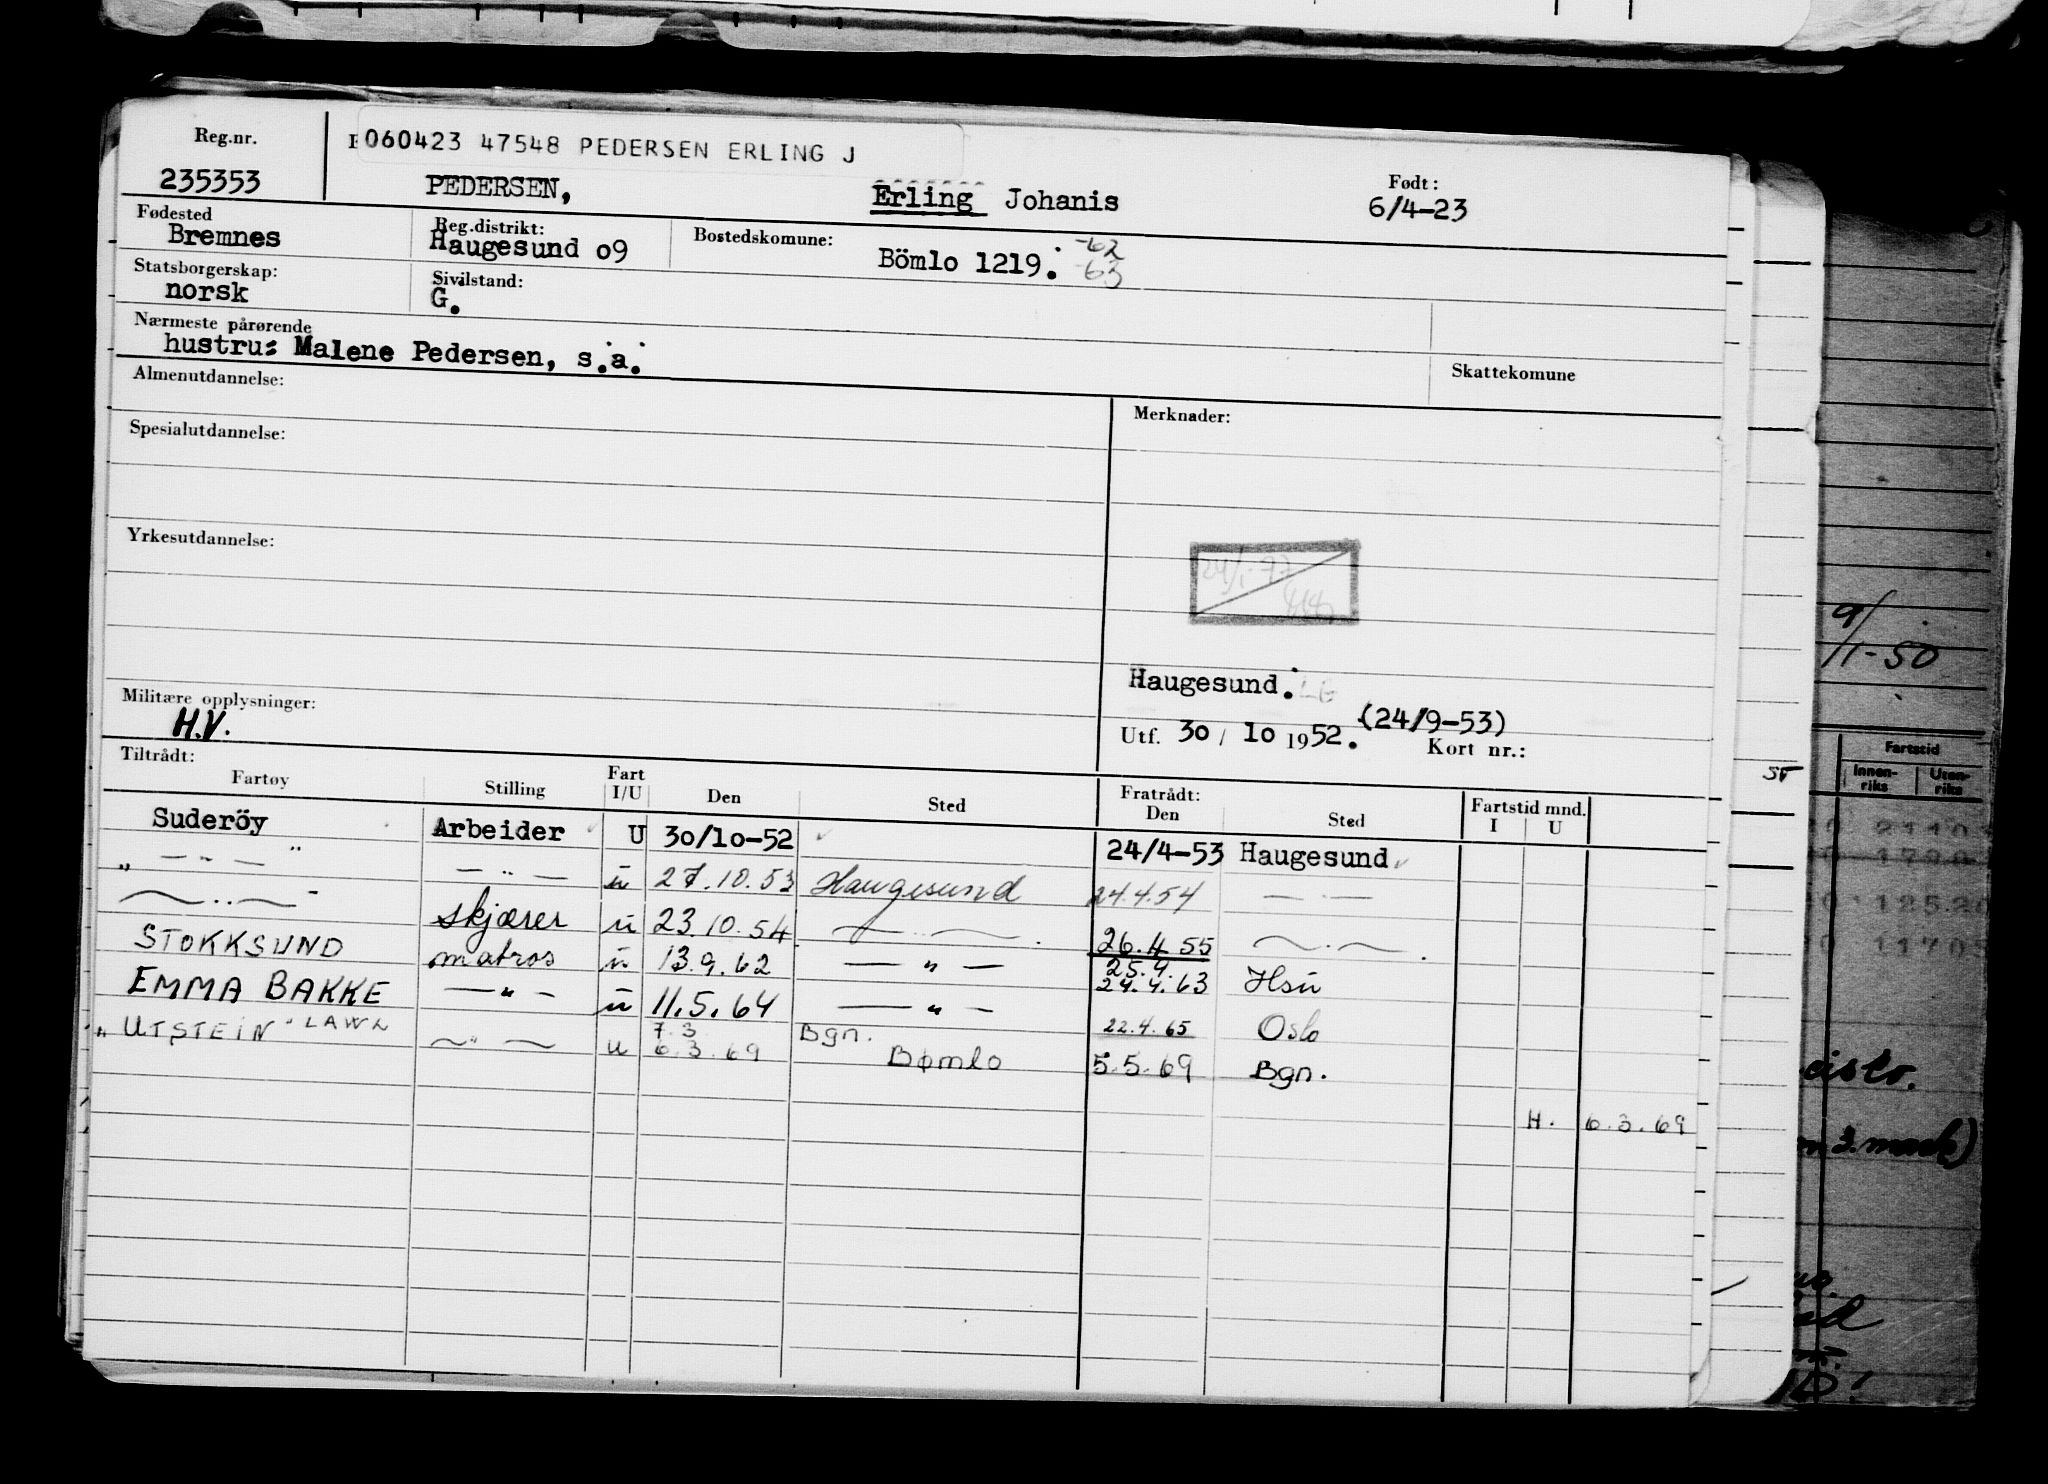 Reg.nr.
060423 47548 PEDERSEN ERLING J
235353
PEDERSEN, Erling Johanis
Født:
6/4-23
Fødested
Bremnes
Reg.distrikt:
Haugesund o9
Bostedskomune:
Bömlo 1219.
-62
-63
Statsborgerskap:
norsk
Sivilstand:
G.
Nærmeste pårørende
hustru: Malene Pedersen, s.a.
Skattekomune
Almenutdannelse:
Merknader:
Spesialutdannelse:
Yrkesutdannelse:
Haugesund.
Militære opplysninger:
H.V.
Utf. 30 / 10 1952. (24/9-53) Kort nr.:
Tiltrådt:
Fartøy Stilling Fart I/U Den Sted Fratrådt: Den Sted Fartstid mnd. I U
Suderöy Arbeider U 30/10-52 24/4-53 Haugesund
" — " — " — " — u 27.10.53 Haugesund 24.4.54 — " —
— " — " skjærer u 23.10.54 — " — 26.4.55 — " —
STOKKSUND matros u 13.9.62 — " — 25.4. 24.4.63 Hsu
EMMA BAKKE — " — u 11.5.64 — " — 22.4.65 Oslo
" UTSTEIN " — " — u 7.3 6.3.69 Bgn. Bømlo 5.5.69 Bgn.
H. 6.3.69
9/1-50
Fartstid
Innen-riks
Uten-riks